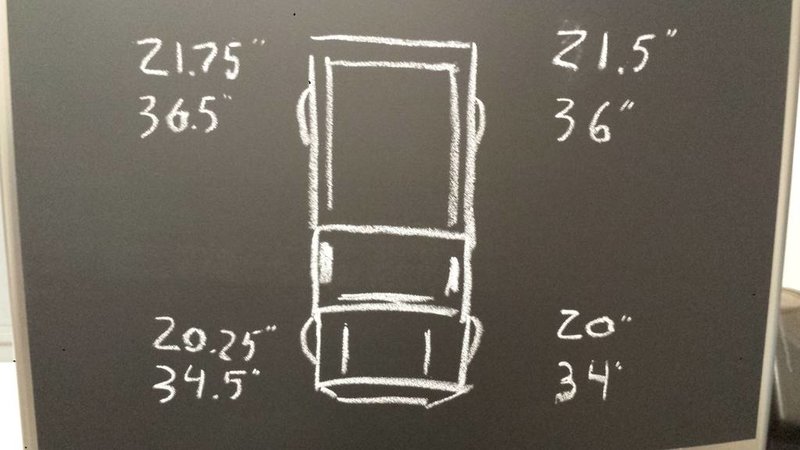 21.75"
36.5"
21.5"
36"
20.25"
34.5"
20"
34"